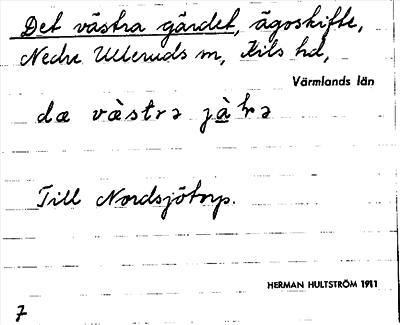 Det västra gärdet, ägoskifte,
Nedre Ulleruds sn, Kils hd,
Värmlands län
dæ vàstrə
Till Nordsjötorp.
HERMAN HULTSTRÖM 1911
7